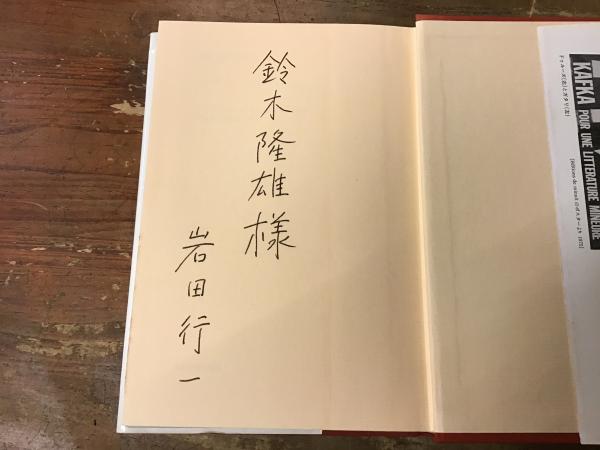 鈴木隆雄様
岩田行一
KAFKA POUR UNE LITTERATURE MINEURE
ドゥルーズ(右)とガタリ(左)